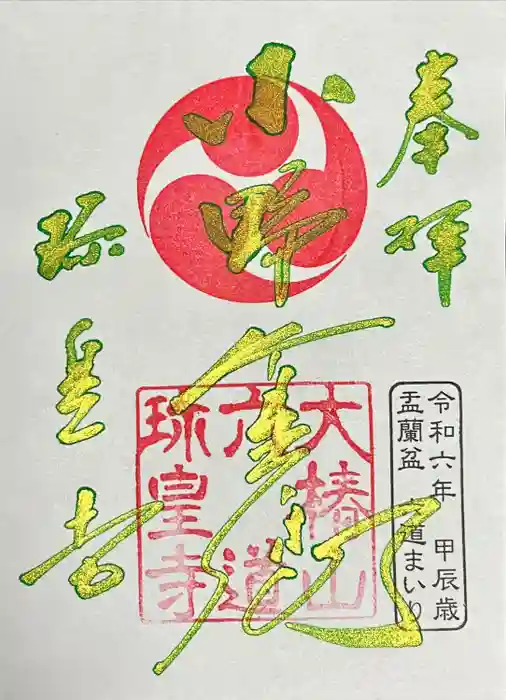 奉拝
小野
珎皇寺
大椿山
六道
珎皇寺
令和六年 甲辰歳
盂蘭盆 道まいり